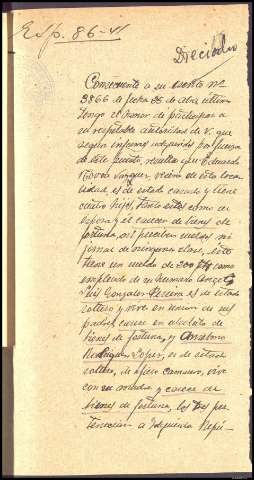 Exp. 86-41
Consecuente a su escrito nº
3866 de fecha 25 de abril último
tengo el honor de participar a
su respetable autoridad de V. que
según informes adquiridos por fuerza
de este puesto, resulta que Eduardo
vecino de esta loca
lidad, es de estado casado y tiene
cuatro hijos, tanto este como su
esposa y él carecen de bienes de
fortuna, no perciben sueldos ni
jornal de ninguna clase, este
tiene un sueldo de 300 Pts como
empleado de su hermano
Luis Gonzalez Pereira es de estado
soltero y vive en unión de sus
padres, carece en absoluto de
bienes de fortuna, y
Rodriguez Lopez, es de estado
soltero, de oficio cantero, vive
con su madre y carece de
bienes de fortuna, los tres per
tenecian a Izquierda Repu-